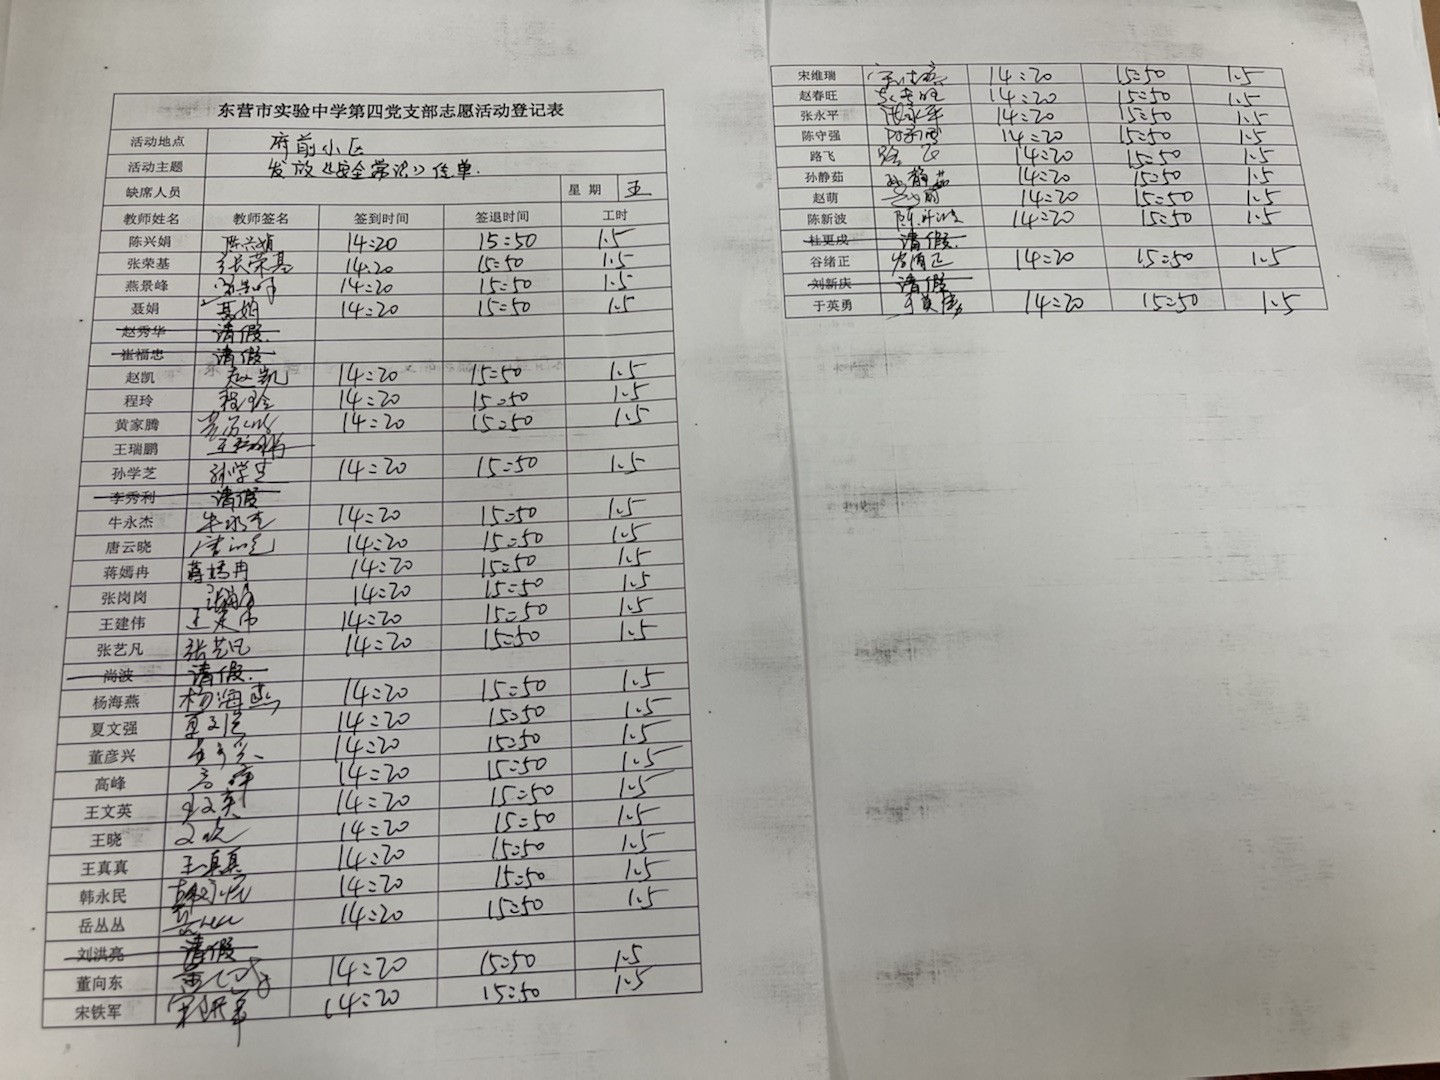 东营市实验中学第四党支部志愿活动登记表
活动地点 府前小区
活动主题 发放《安全常识》传单.
缺席人员 星期 五
教师姓名 教师签名 签到时间 签退时间 工时
陈兴娟 陈兴娟 14:20 15:50 1.5
张荣基 张荣基 14:20 15:50 1.5
燕景峰 14:20 15:50 1.5
聂娟 聂娟 14:20 15:50 1.5
赵秀华 请假.
崔福忠 请假
赵凯 赵凯 14:20 15:50 1.5
程玲 程玲 14:20 15:50 1.5
黄家腾 14:20 15:50 1.5
王瑞鹏 王瑞鹏
孙学芝 孙学芝 14:20 15:50 1.5
李秀利 请假
牛永杰 牛永杰 14:20 15:50 1.5
唐云晓 14:20 15:50 1.5
蒋嫣冉 蒋嫣冉 14:20 15:50 1.5
张岗岗 14:20 15:50 1.5
王建伟 王建伟 14:20 15:50 1.5
张艺凡 张艺凡 14:20 15:50 1.5
尚波 请假.
杨海燕 杨海燕 14:20 15:50 1.5
夏文强 夏文强 14:20 15:50 1.5
董彦兴 14:20 15:50 1.5
高峰 高峰 14:20 15:50 1.5
王文英 王文英 14:20 15:50 1.5
王晓 王晓 14:20 15:50 1.5
王真真 王真真 14:20 15:50 1.5
韩永民 韩永民 14:20 15:50 1.5
岳丛丛 14:20 15:50 1.5
刘洪亮 请假
董向东 14:20 15:50 1.5
宋铁军 宋铁军 14:20 15:50 1.5
宋维瑞 14:20 15:50 1.5
赵春旺 赵春旺 14:20 15:50 1.5
张永平 张永平 14:20 15:50 1.5
陈守强 14:20 15:50 1.5
路飞 路飞 14:20 15:50 1.5
孙静茹 孙静茹 14:20 15:50 1.5
赵萌 赵萌 14:20 15:50 1.5
陈新波 陈新波 14:20 15:50 1.5
杜更成 请假.
谷绪正 谷绪正 14:20 15:50 1.5
刘新庆 请假
于英勇 于英勇 14:20 15:50 1.5